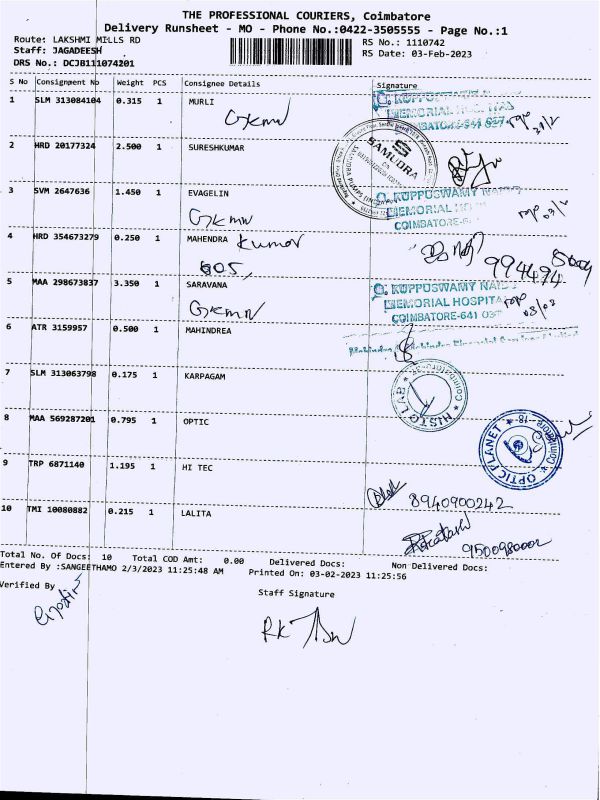 THE PROFESSIONAL COURIERS, Coimbatore
Delivery Runsheet - MO - Phone No.:0422-3505555 - Page No.:1
Route: LAKSHMI MILLS RD
RS No.: 1110742
Staff: JAGADEESH
RS Date: 03-Feb-2023
DRS No.: DCJB111074201
S No Consignment No Weight PCS Consignee Details Signature
1 SLM 313084104 0.315 1 MURLI
GKMH
2 HRD 20177324 2.500 1 SURESHKUMAR
SAMUDRA
3 SVM 2647636 1.450 1 EVAGELIN
GKMH
G. KUPPUSWAMY NAIDU
MEMORIAL
COIMBATORE-6
4 HRD 354673279 0.250 1 MAHENDRA Kumar
5 MAA 298673837 3.350 1 SARAVANA
GKMH
G. KUPPUSWAMY NAIDU
MEMORIAL HOSPITA
COIMBATORE-641 037
03/02
6 ATR 3159957 0.500 1 MAHINDREA
7 SLM 313063798 0.175 1 KARPAGAM
HISTO LAB * Coimbatore
8 MAA 569287201 0.795 1 OPTIC
OPTIC PLANET * Coimbatore-18 *
9 TRP 6871140 1.195 1 HI TEC
8940900242
10 TMI 10080882 0.215 1 LALITA
9500980002
Total No. Of Docs: 10 Total COD Amt: 0.00 Delivered Docs: Non Delivered Docs:
Entered By :SANGEETHAMO 2/3/2023 11:25:48 AM Printed On: 03-02-2023 11:25:56
Verified By
Staff Signature